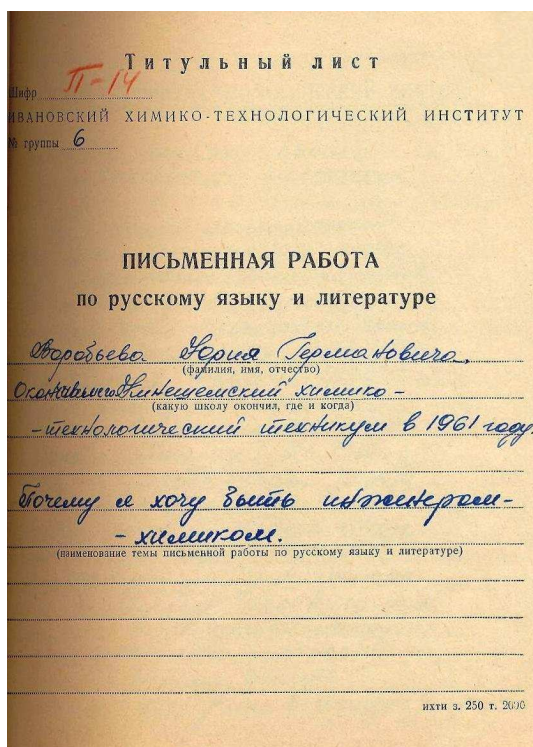 Титульный лист
Шифр П-14
ИВАНОВСКИЙ ХИМИКО-ТЕХНОЛОГИЧЕСКИЙ ИНСТИТУТ
№ группы 6
ПИСЬМЕННАЯ РАБОТА
по русскому языку и литературе
Воробьева Юрия Германовича,
(фамилия, имя, отчество)
Окончившего Кинешемский химико-
(какую школу окончил, где и когда)
-технологический техникум в 1961 году.
Почему я хочу быть инженером-
-химиком.
(наименование темы письменной работы по русскому языку и литературе)
ИХТИ з. 250 т. 2000